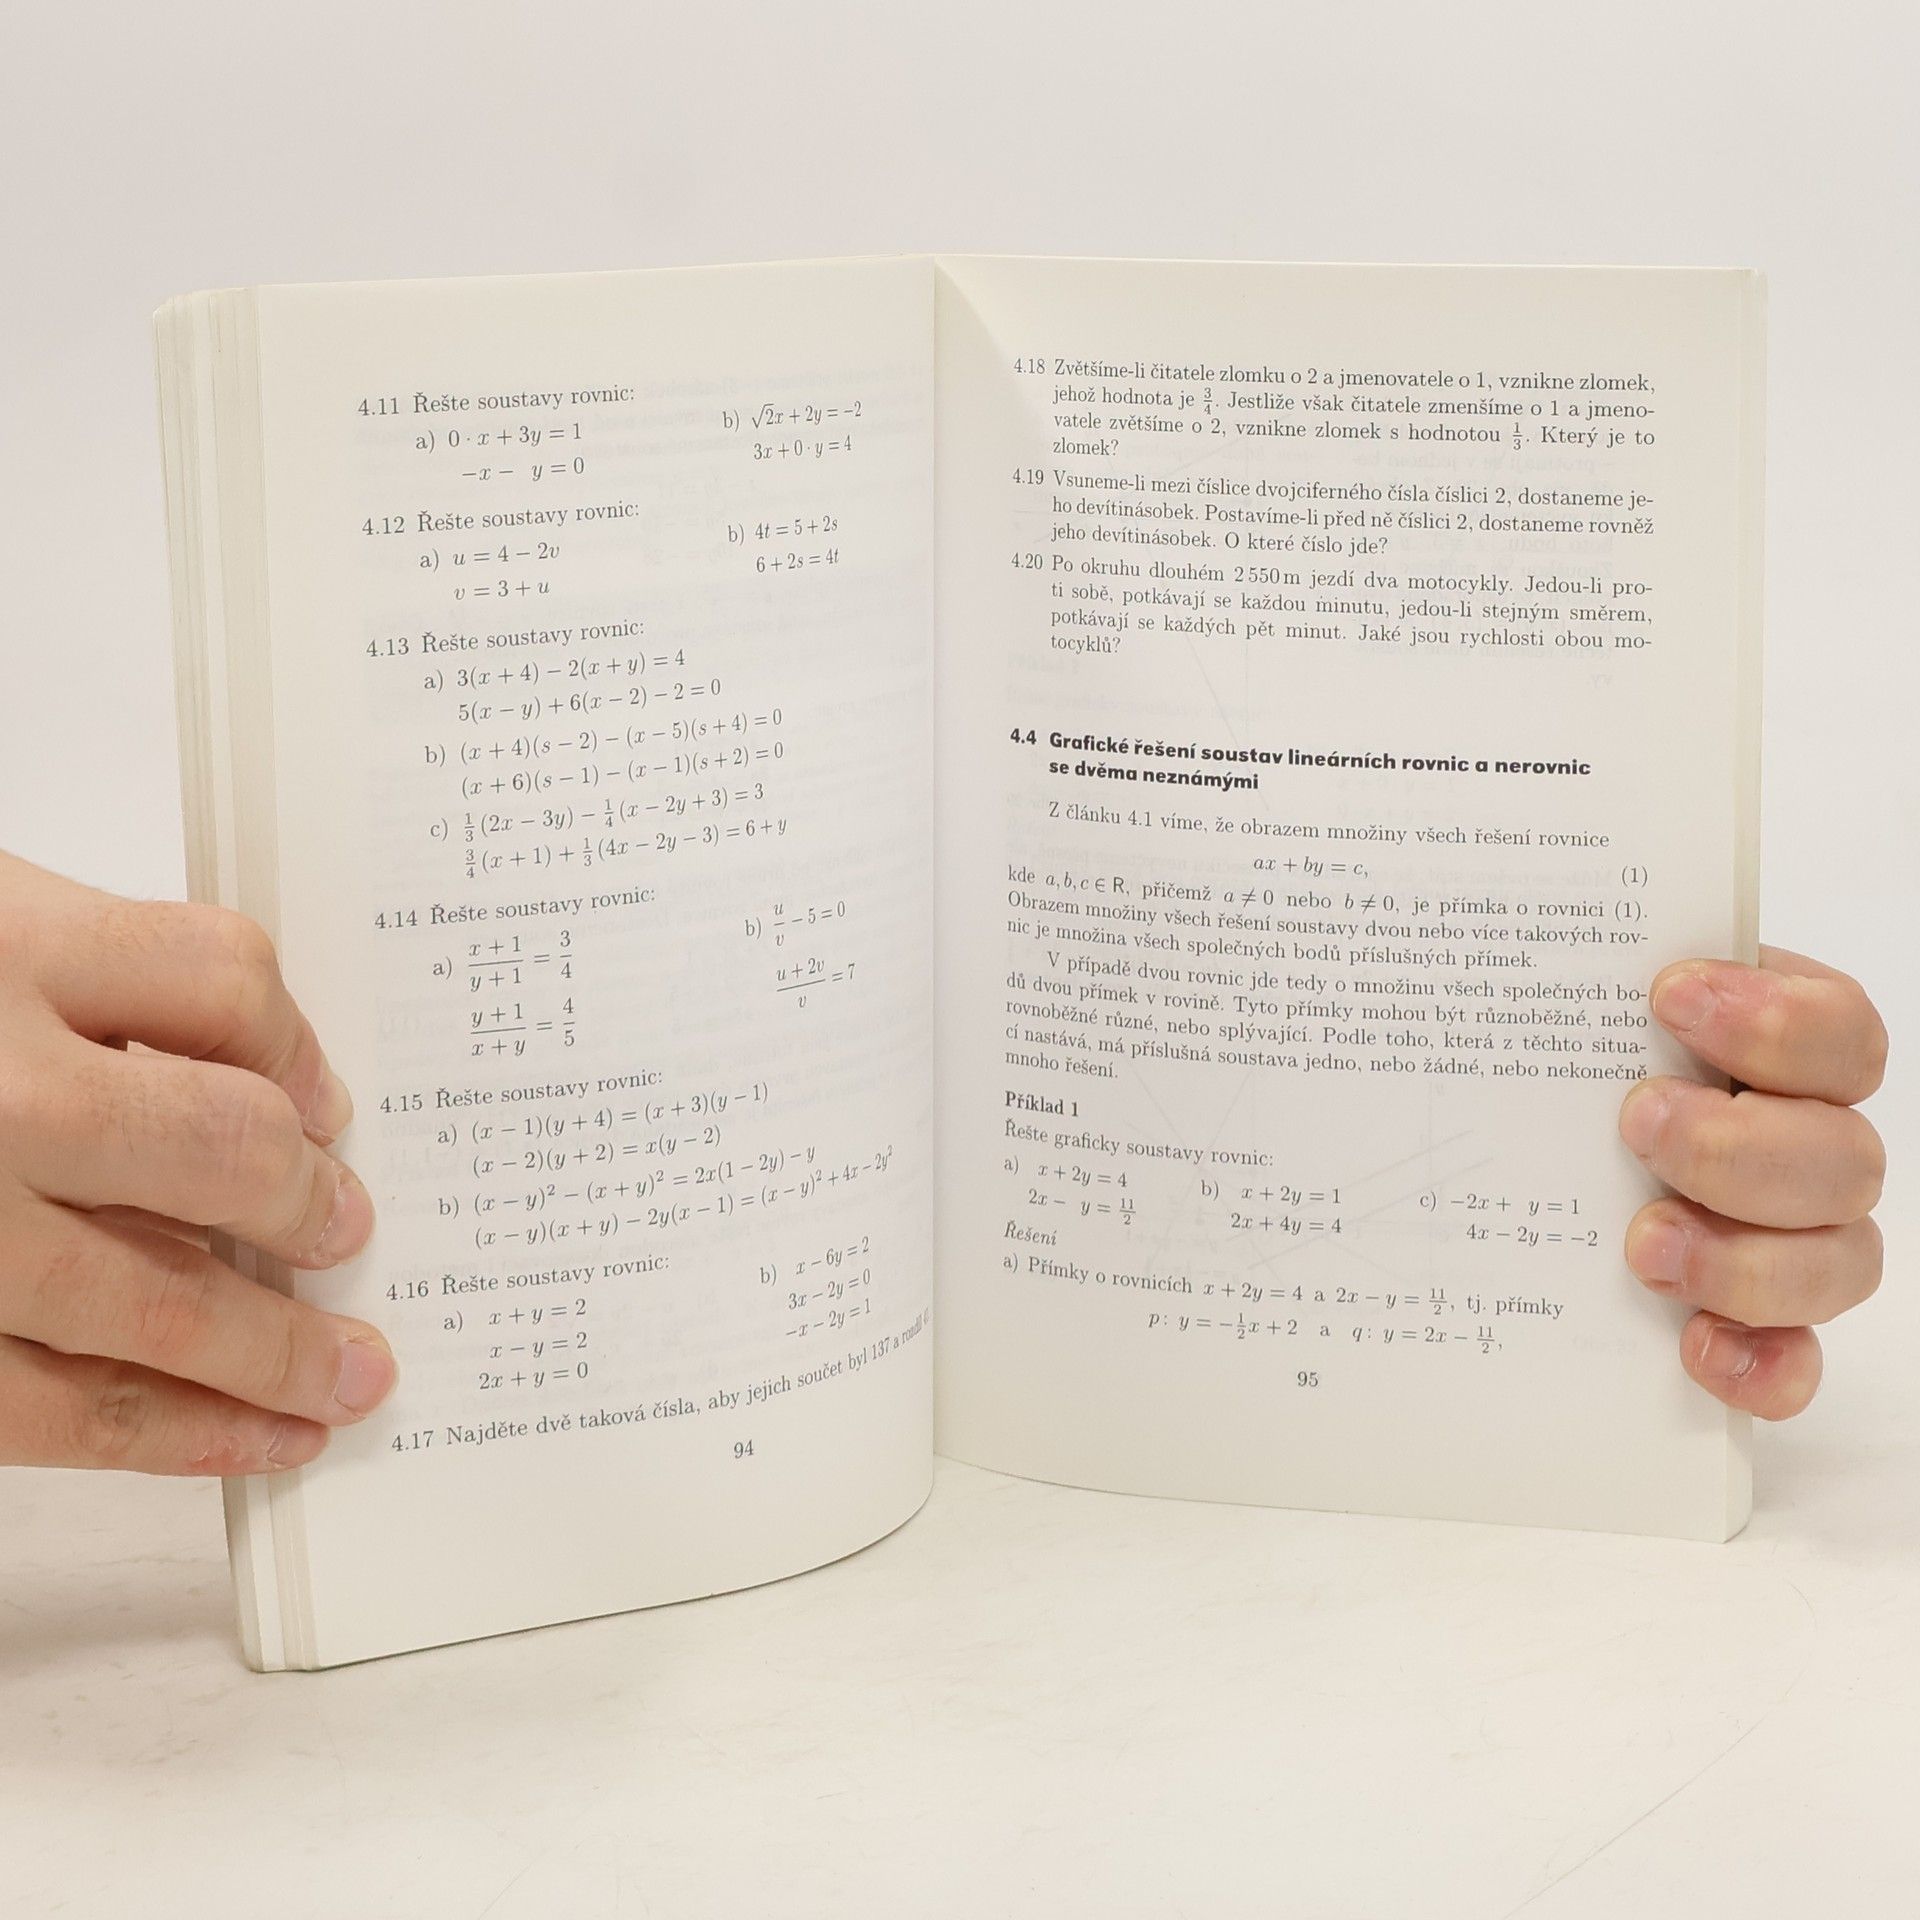 4.11 Řešte soustavy rovnic:
a) 0 · x + 3y = 1 b) √2x + 2y = −2
−x − y = 0 3x + 0 · y = 4
4.12 Řešte soustavy rovnic:
a) u = 4 − 2v b) 4t = 5 + 2s
v = 3 + u 6 + 2s = 4t
4.13 Řešte soustavy rovnic:
a) 3(x + 4) − 2(x + y) = 4
5(x − y) + 6(x − 2) − 2 = 0
b) (x + 4)(s − 2) − (x − 5)(s + 4) = 0
(x + 6)(s − 1) − (x − 1)(s + 2) = 0
c) 1/3 (2x − 3y) − 1/4 (x − 2y + 3) = 3
3/4 (x + 1) + 1/3 (4x − 2y − 3) = 6 + y
4.14 Řešte soustavy rovnic:
a) (x + 1)/(y + 1) = 3/4 b) u/v − 5 = 0
(y + 1)/(x + y) = 4/5 (u + 2v)/v = 7
4.15 Řešte soustavy rovnic:
a) (x − 1)(y + 4) = (x + 3)(y − 1)
(x − 2)(y + 2) = x(y − 2)
b) (x − y)² − (x + y)² = 2x(1 − 2y) − y
(x − y)(x + y) − 2y(x − 1) = (x − y)² + 4x − 2y²
4.16 Řešte soustavy rovnic:
a) x + y = 2 b) x − 6y = 2
x − y = 2 3x − 2y = 0
2x + y = 0 −x − 2y = 1
4.17 Najděte dvě taková čísla, aby jejich součet byl 137 a rozdíl
94
4.18 Zvětšíme-li čitatele zlomku o 2 a jmenovatele o 1, vznikne zlomek,
jehož hodnota je 3/4. Jestliže však čitatele zmenšíme o 1 a jmeno-
vatele zvětšíme o 2, vznikne zlomek s hodnotou 1/3. Který je to
zlomek?
4.19 Vsuneme-li mezi číslice dvojciferného čísla číslici 2, dostaneme je-
ho devítinásobek. Postavíme-li před ně číslici 2, dostaneme rovněž
jeho devítinásobek. O které číslo jde?
4.20 Po okruhu dlouhém 2 550 m jezdí dva motocykly. Jedou-li pro-
ti sobě, potkávají se každou minutu, jedou-li stejným směrem,
potkávají se každých pět minut. Jaké jsou rychlosti obou mo-
tocyklů?
4.4 Grafické řešení soustav lineárních rovnic a nerovnic
se dvěma neznámými
Z článku 4.1 víme, že obrazem množiny všech řešení rovnice
ax + by = c, (1)
kde a, b, c ∈ R, přičemž a ≠ 0 nebo b ≠ 0, je přímka o rovnici (1).
Obrazem množiny všech řešení soustavy dvou nebo více takových rov-
nic je množina všech společných bodů příslušných přímek.
V případě dvou rovnic jde tedy o množinu všech společných bo-
dů dvou přímek v rovině. Tyto přímky mohou být různoběžné, nebo
rovnoběžné různé, nebo splývající. Podle toho, která z těchto situa-
cí nastává, má příslušná soustava jedno, nebo žádné, nebo nekonečně
mnoho řešení.
Příklad 1
Řešte graficky soustavy rovnic:
a) x + 2y = 4 b) x + 2y = 1 c) −2x + y = 1
2x − y = 11/2 2x + 4y = 4 4x − 2y = −2
Řešení
a) Přímky o rovnicích x + 2y = 4 a 2x − y = 11/2, tj. přímky
p: y = −1/2x + 2 a q: y = 2x − 11/2,
95